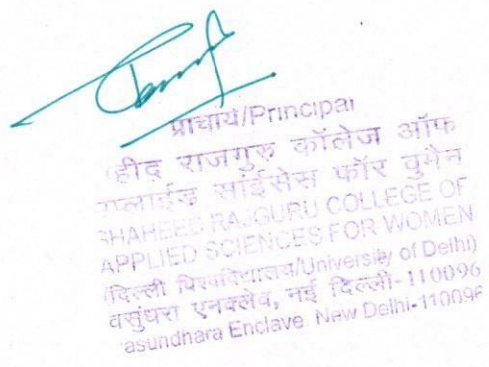 प्राचार्य/Principal
हीद राजगुरु कॉलेज ऑफ
प्लाईड साईसेस फॉर वुमेन
SHAHEED RAJGURU COLLEGE OF
APPLIED SCIENCES FOR WOMEN
(दिल्ली विश्वविद्यालय/University of Delhi)
वसुंधरा एनक्लेव, नई दिल्ली-110096
asundhara Enclave New Delhi-110096